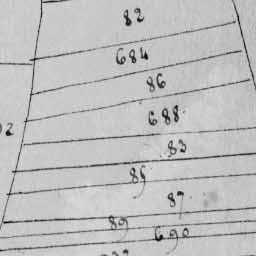 82
684
86
688
83
87
89
690